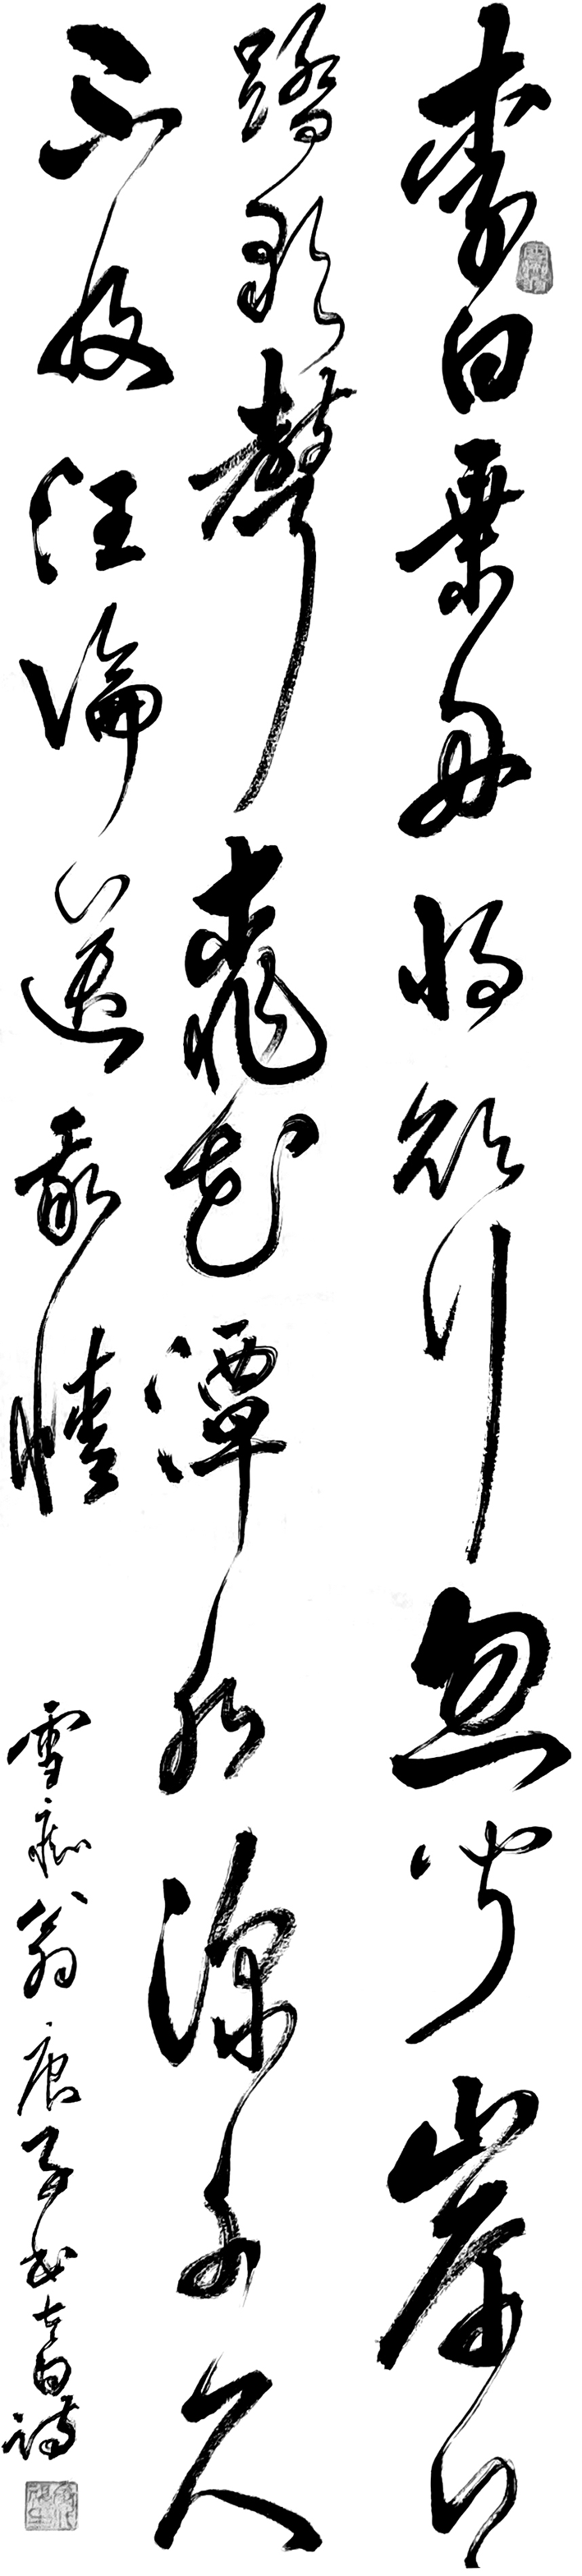 李白乘舟將欲行忽聞岸上
踏歌聲桃花潭水深千尺
不及汪倫送我情
雪痴翁庚子書李白詩